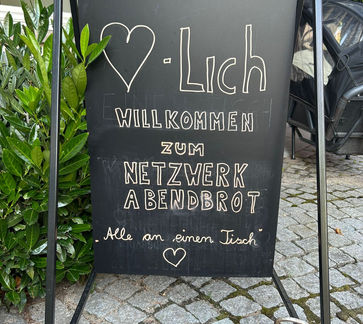 ♡-Lich
WILLKOMMEN
ZUM
NETZWERK
ABENDBROT
„Alle an einen Tisch"
♡